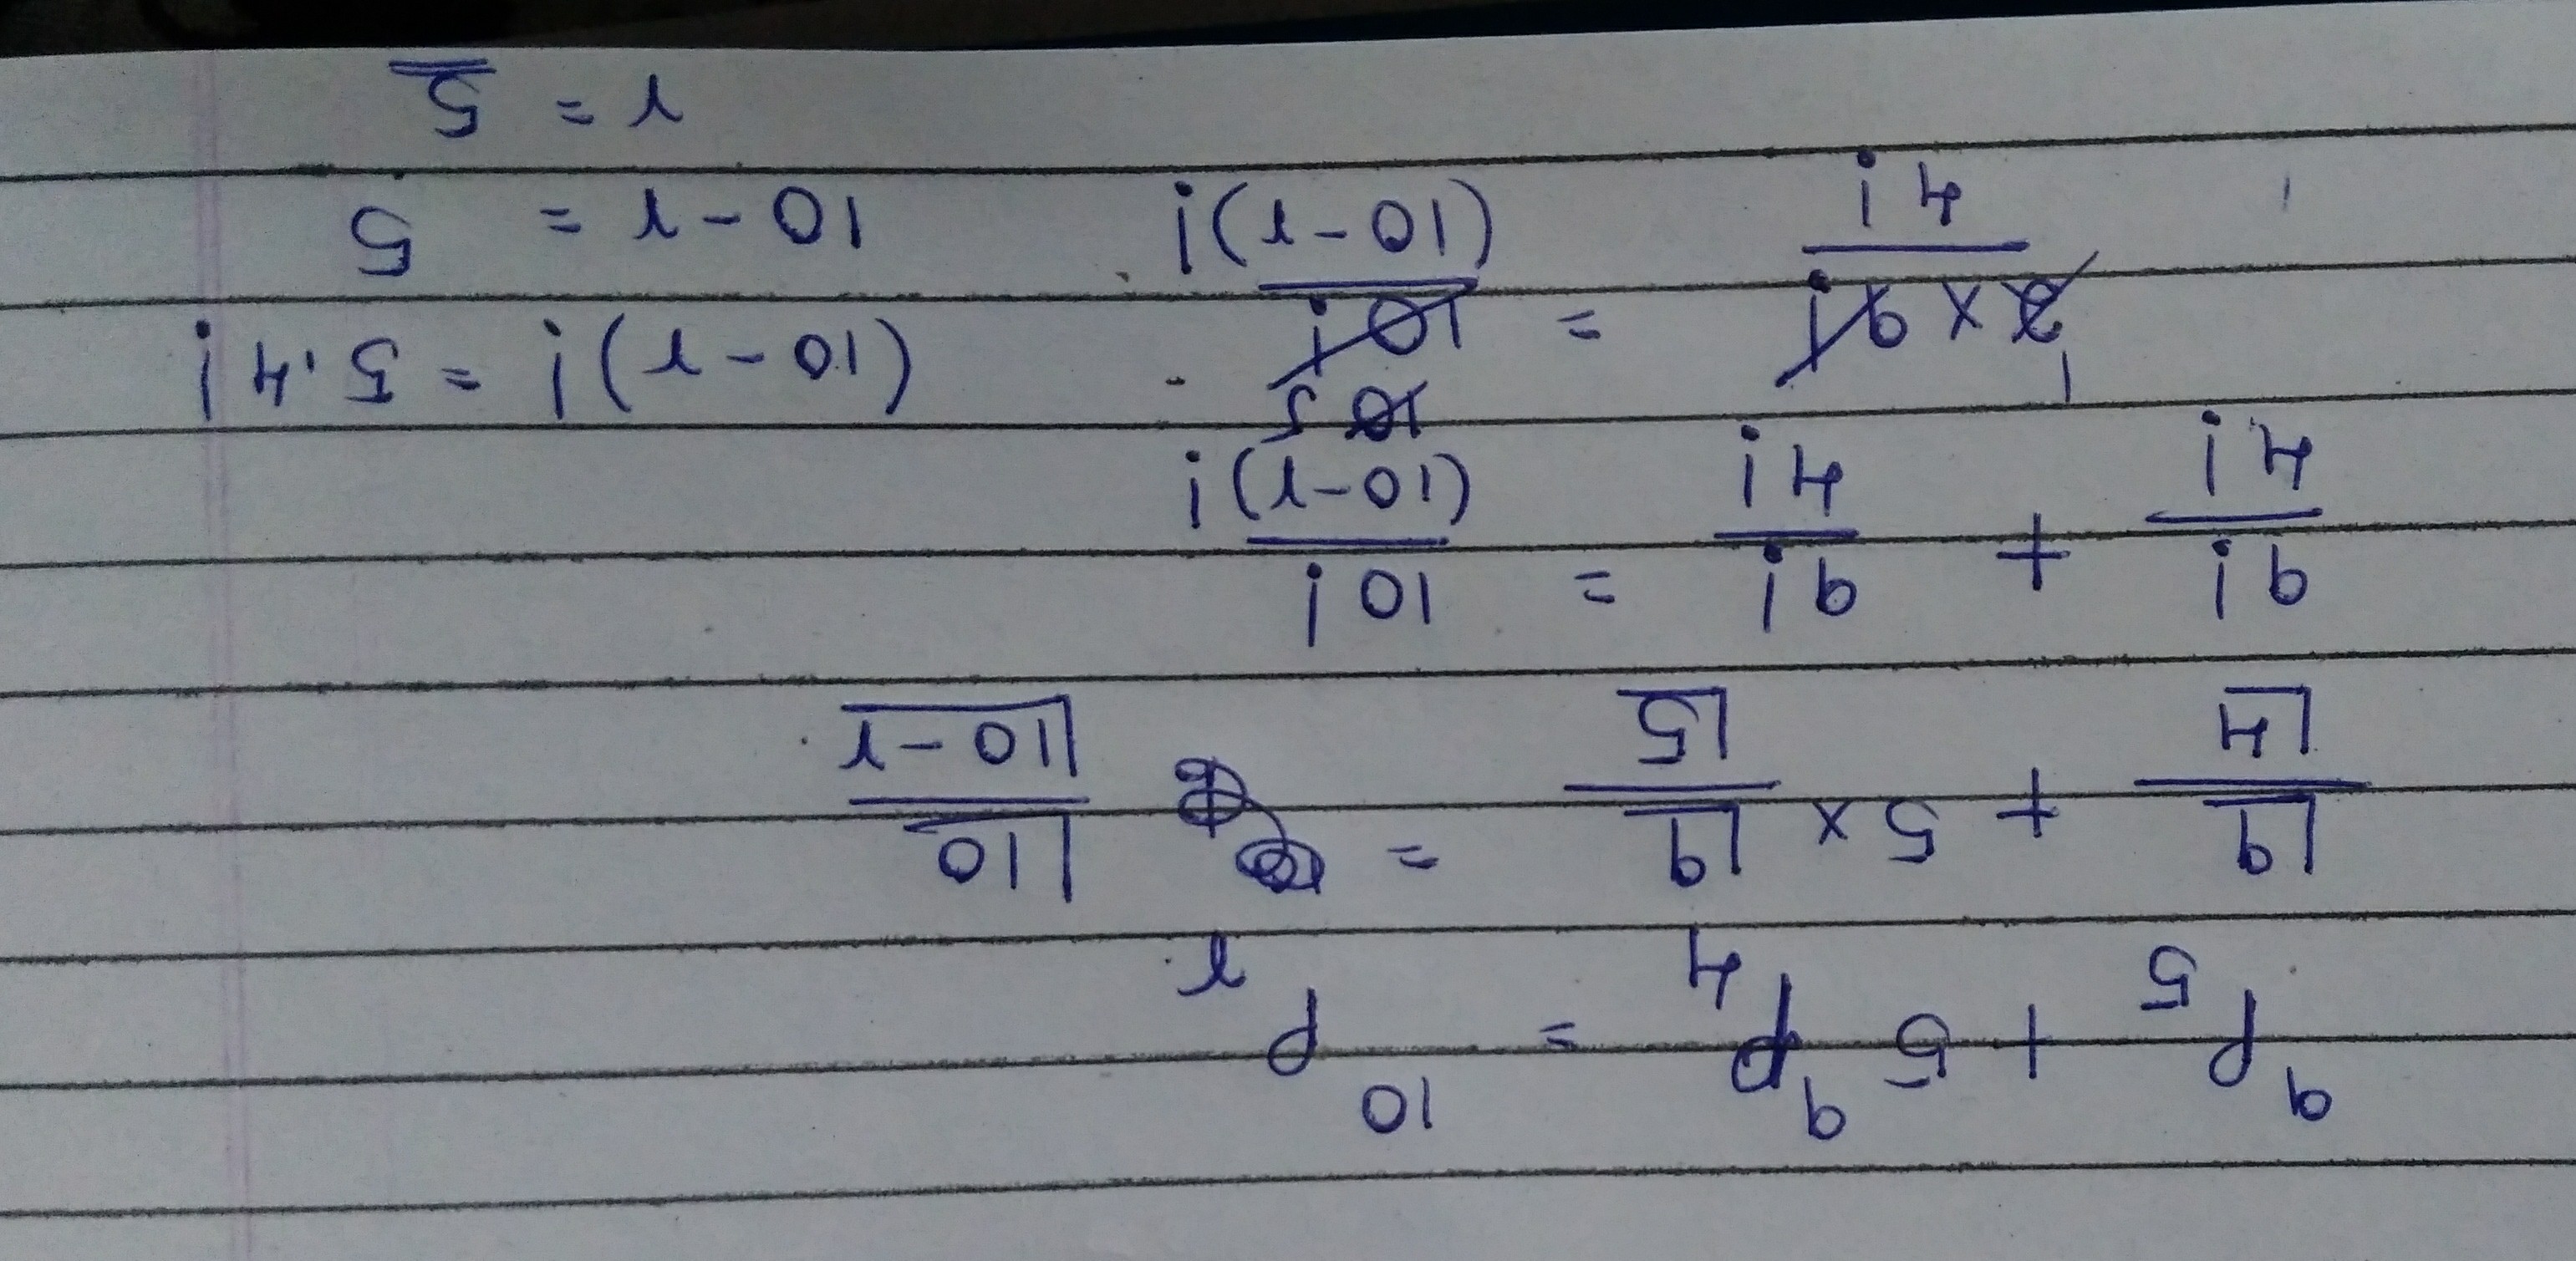 ⁹P₅ + 5 ⁹P₄ = ¹⁰Pᵣ.
|9 / |4 + 5 × |9 / |5 = |10 / |10-r
9! / 4! + 9! / 4! = 10! / (10-r)!
1 2 × 9! / 4! = 10 5 10! / (10-r)! (10-r)! = 5.4!
10-r = 5
r = 5